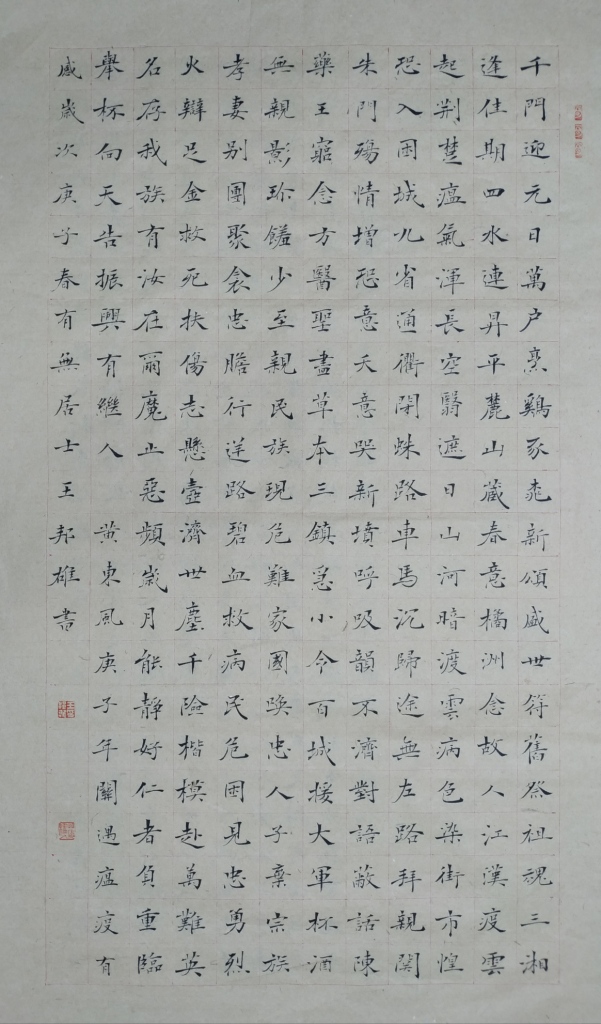 千門迎元日萬户烹鷄豕桃新頌盛世符舊祭祖魂三湘
逢佳期四水連昇平麓山藏春意橘洲念故人江漢疫雲
起荆楚瘟氣渾長空翳遮日山河暗渡雲病色染街市惶
恐入困城九省通衢閉蛛路車馬沉歸途無左路拜親関
朱門殤情增恐意天意哭新墳呼吸韻不濟對語蔽話陳
藥王窮念方醫聖盡草本三鎮急小令百城援大軍杯酒
無親影珍饈少至親民族現危難家國喚忠人子棄宗族
孝妻别團聚衾忠膽行逆路碧血救病民危困見忠勇烈
火辯足金救死扶傷志懸壺濟世塵千險楷模赴萬難英
名存我族有汝在爾魔止惡頻歲月能靜好仁者負重臨
舉杯向天告振興有繼人 黄東風庚子年關遇瘟疫有
感歲次庚子春有無居士王邦雄書